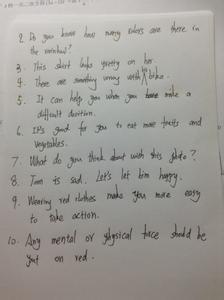 2. Do you know how many colors are there in
the rainbow?
3. This skirt looks pretty on her.
4. There are something wrong with bike.
5. It can help you when you have make a
difficult decition.
6. It's good for you to eat more fruits and
vegetables.
7. What do you think about with this photo?
8. Tom is sad. Let's let him happy.
9. Wearing red clothes make you more easy
to take action.
10. Any mental or physical face should be
put on red.